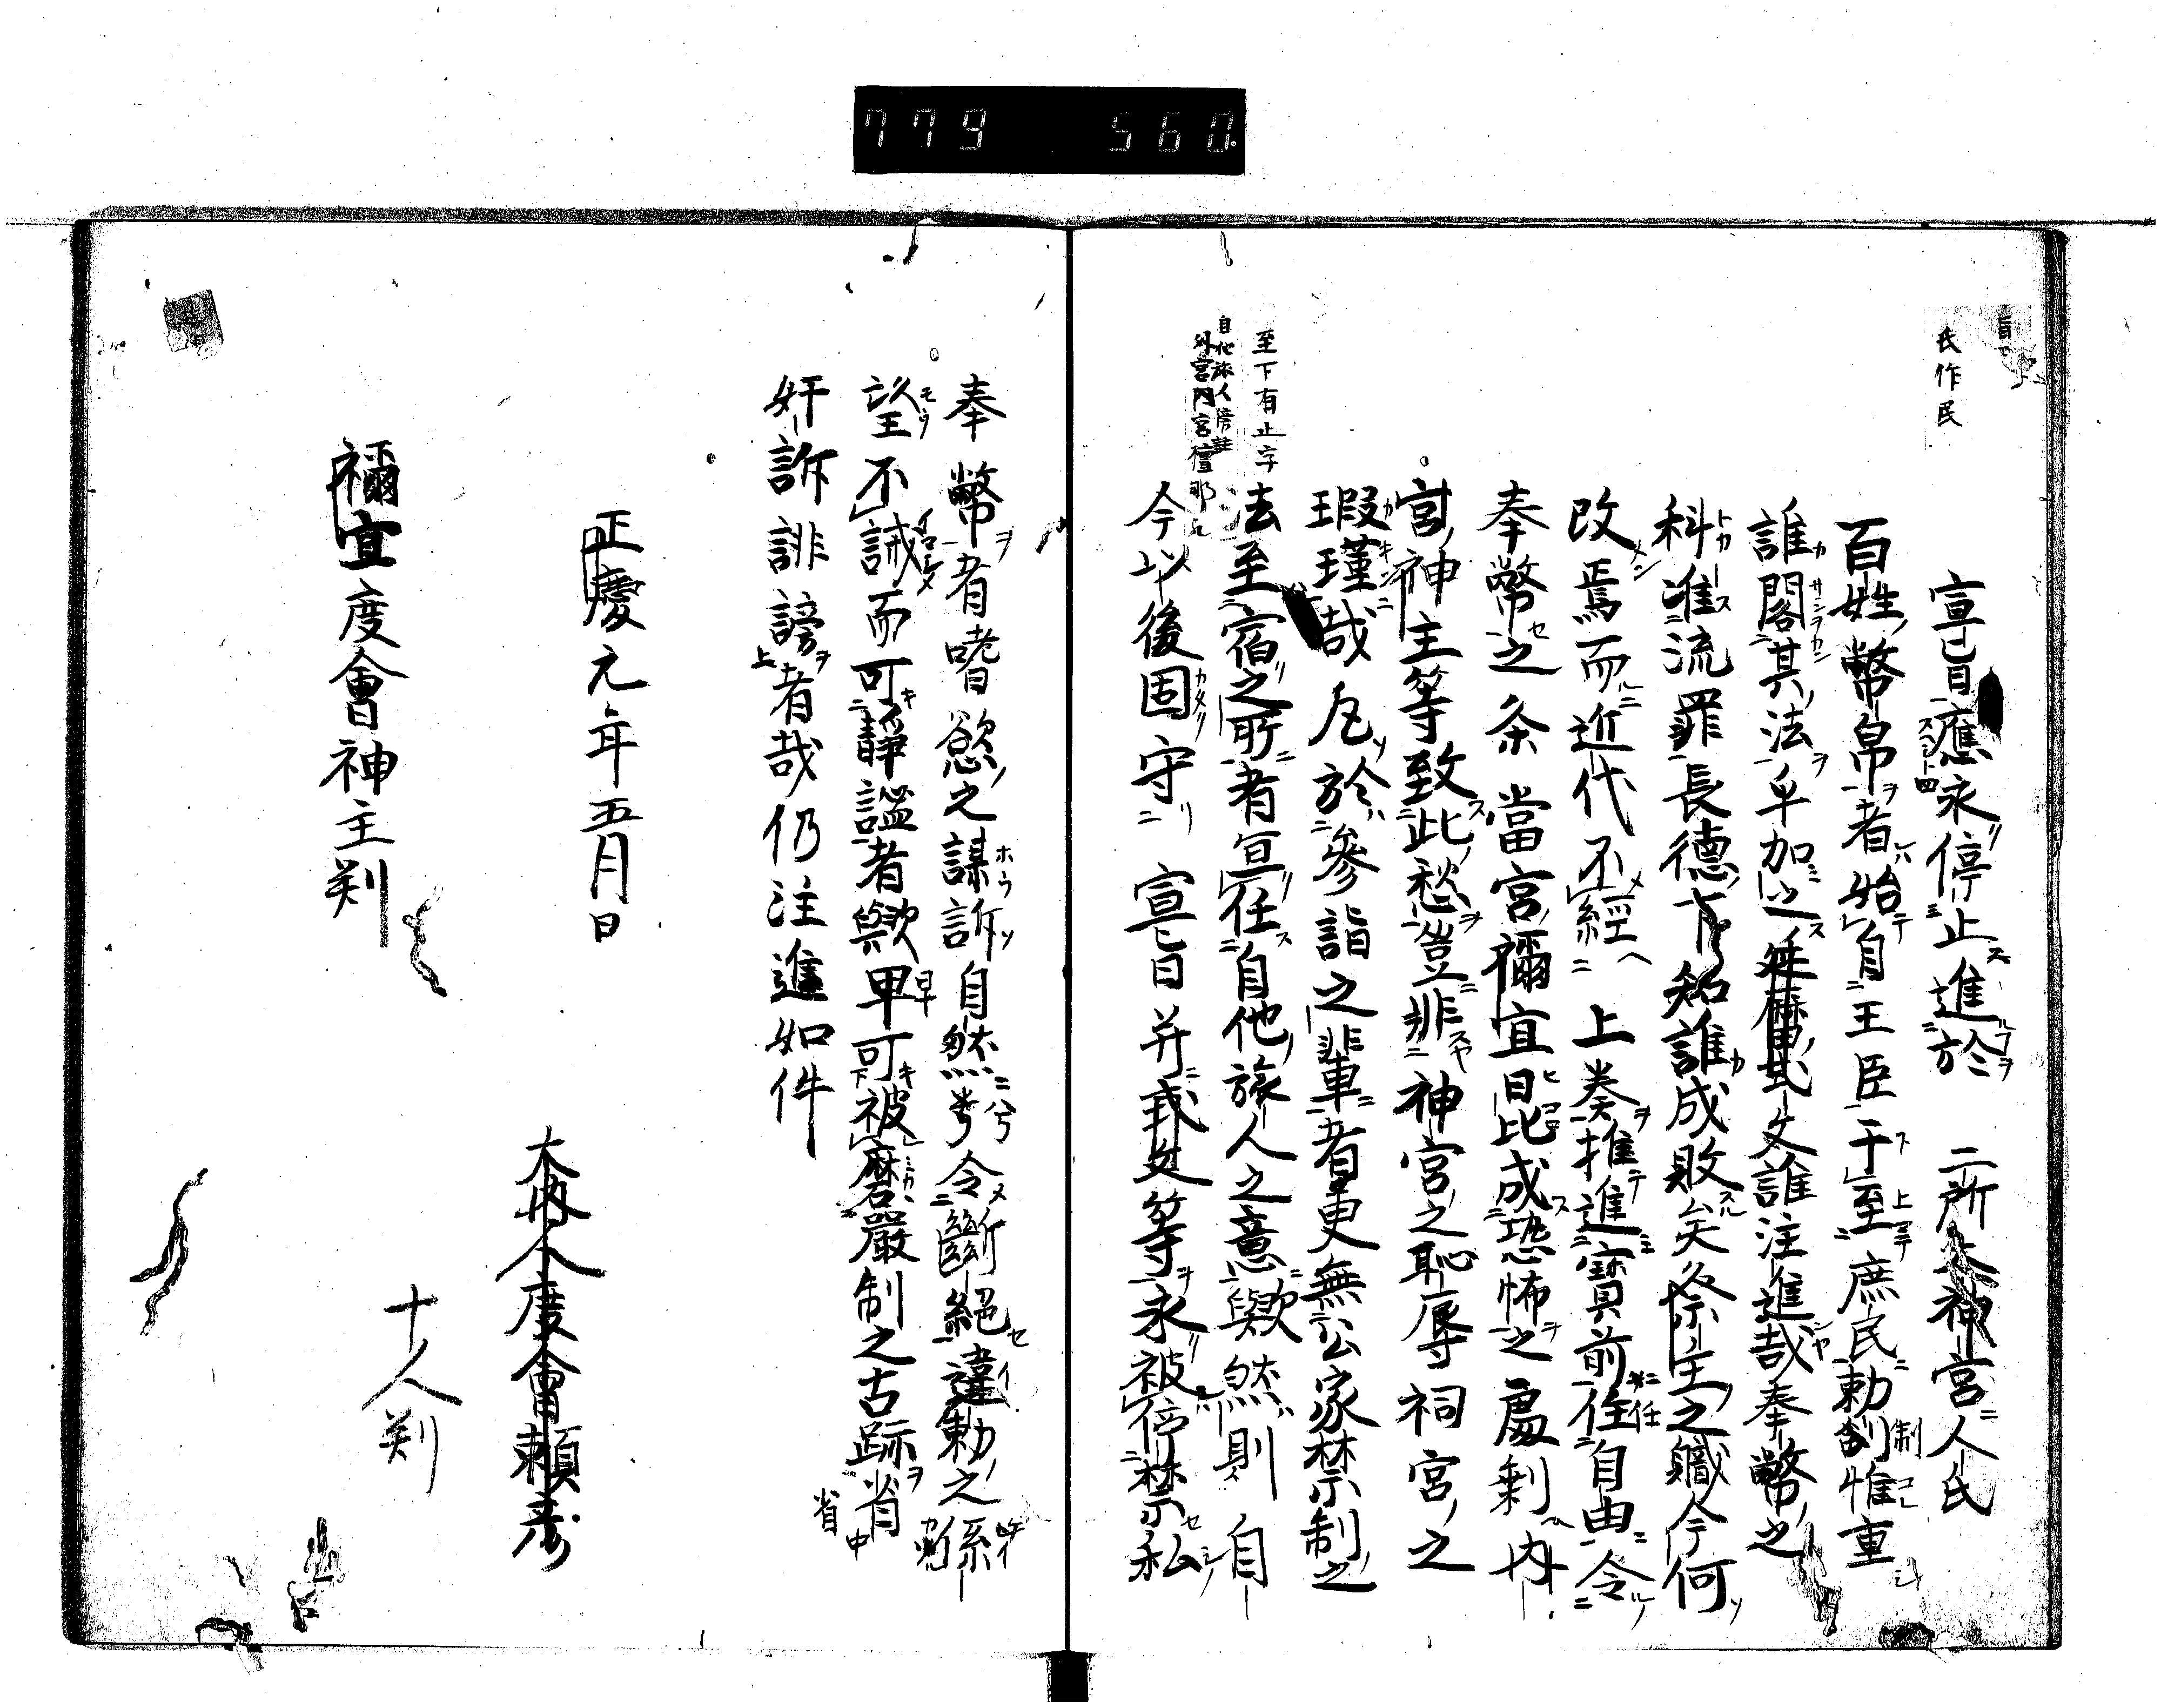 779 560
氏作民
宣旨應永停止進於 二所太神宮人氏
百姓幣帛者始自王臣于至庶民勅制惟重
誰閣其法早加之延曆式文誰注進哉奉幣之
科准流罪長德 知誰成敗矣祭主之職今何
改焉而近代不經 上奏推進寶前任自由令
奉幣之条當宮禰宜日比成恐怖之處剩内
宮神主等致此愁豈非神宮之恥辱祠宮之
瑕瑾哉凡於參詣之輩者更無公家禁制之
至下有止字
自他旅人
外宮内宮
法至宿之所者宜任自他旅人之意歟然則自
今以後固守 宣旨并式文等永被停禁私
奉幣者嗜慾之謀訴自然兮令斷絕違勅之
望不誡而可靜謐者歟早可被磨嚴制之古跡省
奸訴誹謗者哉仍注進如件
正慶元年五月日
大内人度會賴
禰宜度會神主判
十人判